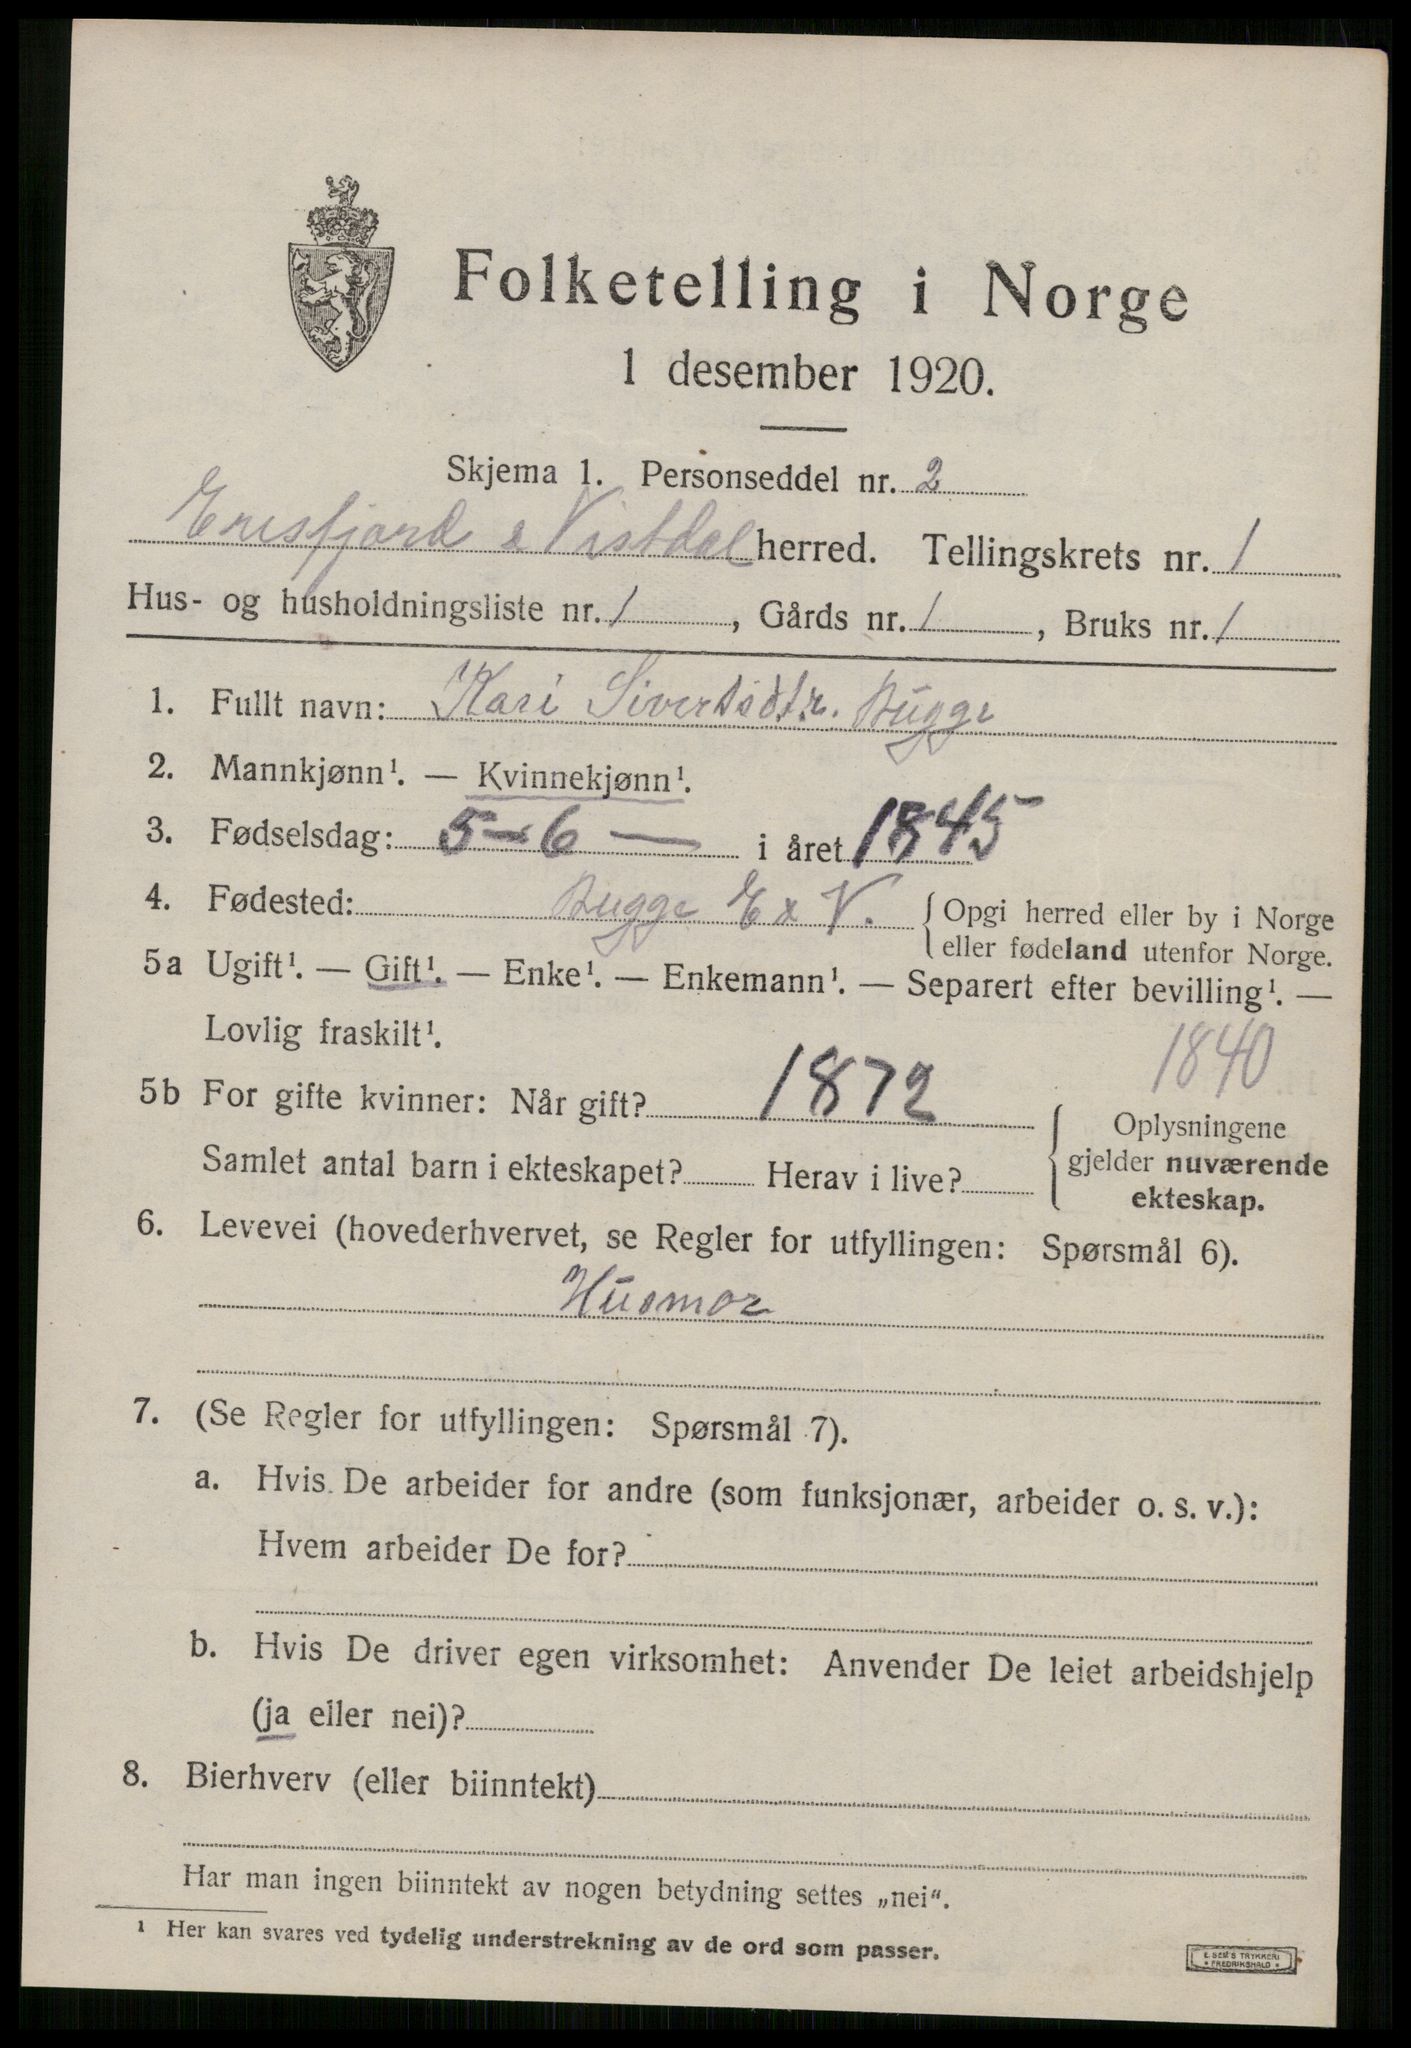 Folketelling i Norge
1 desember 1920.
Skjema 1. Personseddel nr. 2
Eresfjord & Vistdal herred. Tellingskrets nr. 1
Hus- og husholdningsliste nr. 1, Gårds nr. 1, Bruks nr. 1
1. Fullt navn: Kari Sivertsdtr. Bugge
2. Mannkjønn¹. — Kvinnekjønn¹.
3. Fødselsdag: 5-6 — i året 1845
4. Fødested: Bugge E & V. { Opgi herred eller by i Norge
eller fødeland utenfor Norge.
5a Ugift¹. — Gift¹. — Enke¹. — Enkemann¹. — Separert efter bevilling¹. —
Lovlig fraskilt¹.
1840
5b For gifte kvinner: Når gift? 1872
Samlet antal barn i ekteskapet? Herav i live?
Oplysningene
gjelder nuværende
ekteskap.
6. Levevei (hovederhvervet, se Regler for utfyllingen: Spørsmål 6).
Husmor
7. (Se Regler for utfyllingen: Spørsmål 7).
a. Hvis De arbeider for andre (som funksjonær, arbeider o. s. v.):
Hvem arbeider De for?
b. Hvis De driver egen virksomhet: Anvender De leiet arbeidshjelp
(ja eller nei)?
8. Bierhverv (eller biinntekt)
Har man ingen biinntekt av nogen betydning settes „nei“.
¹ Her kan svares ved tydelig understrekning av de ord som passer.
E. SEM'S TRYKKERI
• FREDRIKSHALD •